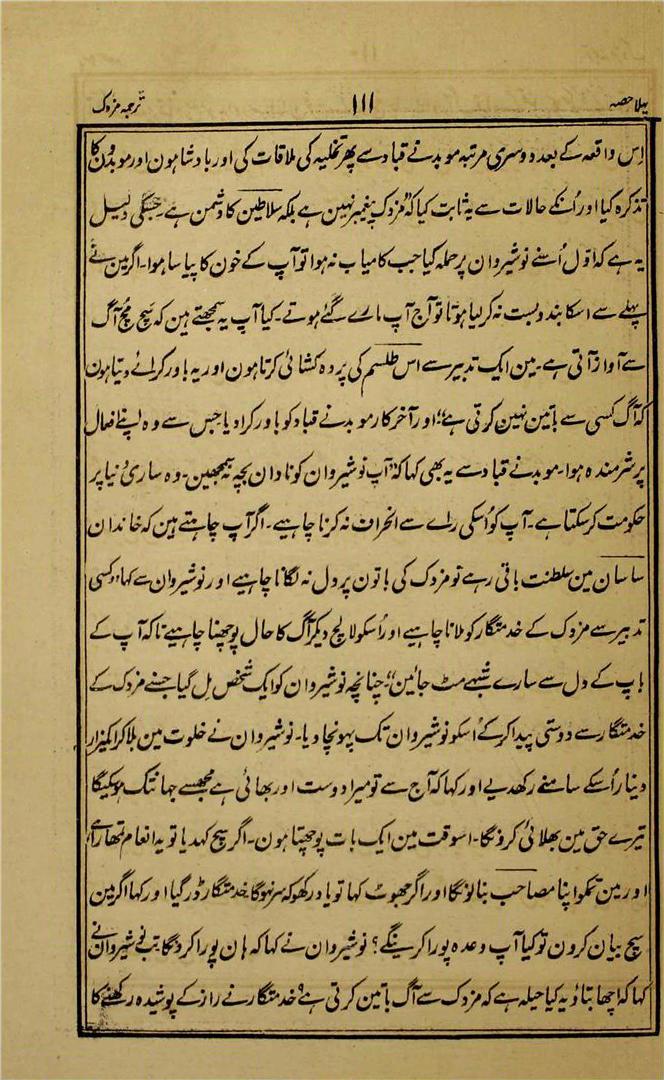 پہلا حصہ ۱۱۱ ترجمہ مزدک
اِس واقعہ کے بعد دوسری مرتبہ موبد نے قباد سے پھر تخلیہ کی ملاقات کی اور بادشاہون اور موبدون کا
تذکرہ کیا اور اُنکے حالات سے یہ ثابت کیا کہ "مزدک پیغمبر نہین ہے بلکہ سلاطین کا دشمن ہے۔ جسکی دلیل
یہ ہے کہ اوّل اُسنے نوشیروان پر حملہ کیا جب کامیاب نہ ہوا تو آپ کے خون کا پیاسا ہوا۔ اگر مین نے
پہلے سے اسکا بندوبست نہ کر لیا ہوتا تو آج آپ مارے گئے ہوتے۔ کیا آپ یہ سمجھتے ہین کہ سچ مُچ آگ
سے آواز آتی ہے۔ مین ایک تدبیر سے اس طلسم کی پردہ کشائی کرتا ہون اور یہ باور کرائے دیتا ہون
کہ آگ کسی سے باتین نہین کرتی ہے" اور آخرکار موبد نے قباد کو باور کرا دیا جس سے وہ اپنے افعال
پر شرمندہ ہوا۔ موبد نے قباد سے یہ بھی کہا کہ "آپ نوشیروان کو نادان بچہ نہ سمجھین۔ وہ ساری دُنیا پر
حکومت کر سکتا ہے۔ آپ کو اُسکی راے سے انحراف نہ کرنا چاہیے۔ اگر آپ چاہتے ہین کہ خاندان
ساسان مین سلطنت باقی رہے تو مزدک کی باتون پر دل نہ لگانا چاہیے اور نوشیروان سے کہا "کسی
تدبیر سے مزدک کے خدمتگار کو ملانا چاہیے اور اُسکو لالچ دیکر آگ کا حال پوچھنا چاہیے تاکہ آپ کے
باپ کے دل سے سارے شبہے مٹ جائین" چنانچہ نوشیروان کو ایک شخص مِل گیا جسنے مزدک کے
خدمتگار سے دوستی پیدا کر کے اُسکو نوشیروان تک پہونچا دیا۔ نوشیروان نے خلوت مین بلا کر ایکہزار
دینار اُسکے سامنے رکھدیے اور کہا کہ آج سے تو میرا دوست اور بھائی ہے مجھسے جہانتک ہو سکیگا
تیرے حق مین بھلائی کرونگا۔ اسوقت مین ایک بات پوچھتا ہون۔ اگر سچ کہدیا تو یہ انعام تمھارا ہے
اور مین تمکو اپنا مصاحب بنا لونگا اور اگر جھوٹ کہا تو یاد رکھو کہ سر نہو گا خدمتگار ڈر گیا اور کہا اگر مین
سچ بیان کرون تو کیا آپ وعدہ پورا کرینگے؟ نوشیروان نے کہا کہ ہان پورا کرونگا تب نوشیروان نے
کہا کہ اچھا بتاؤ یہ کیا حیلہ ہے کہ مزدک سے آگ باتین کرتی ہے؟ خدمتگار نے راز کے پوشیدہ رکھنے کا